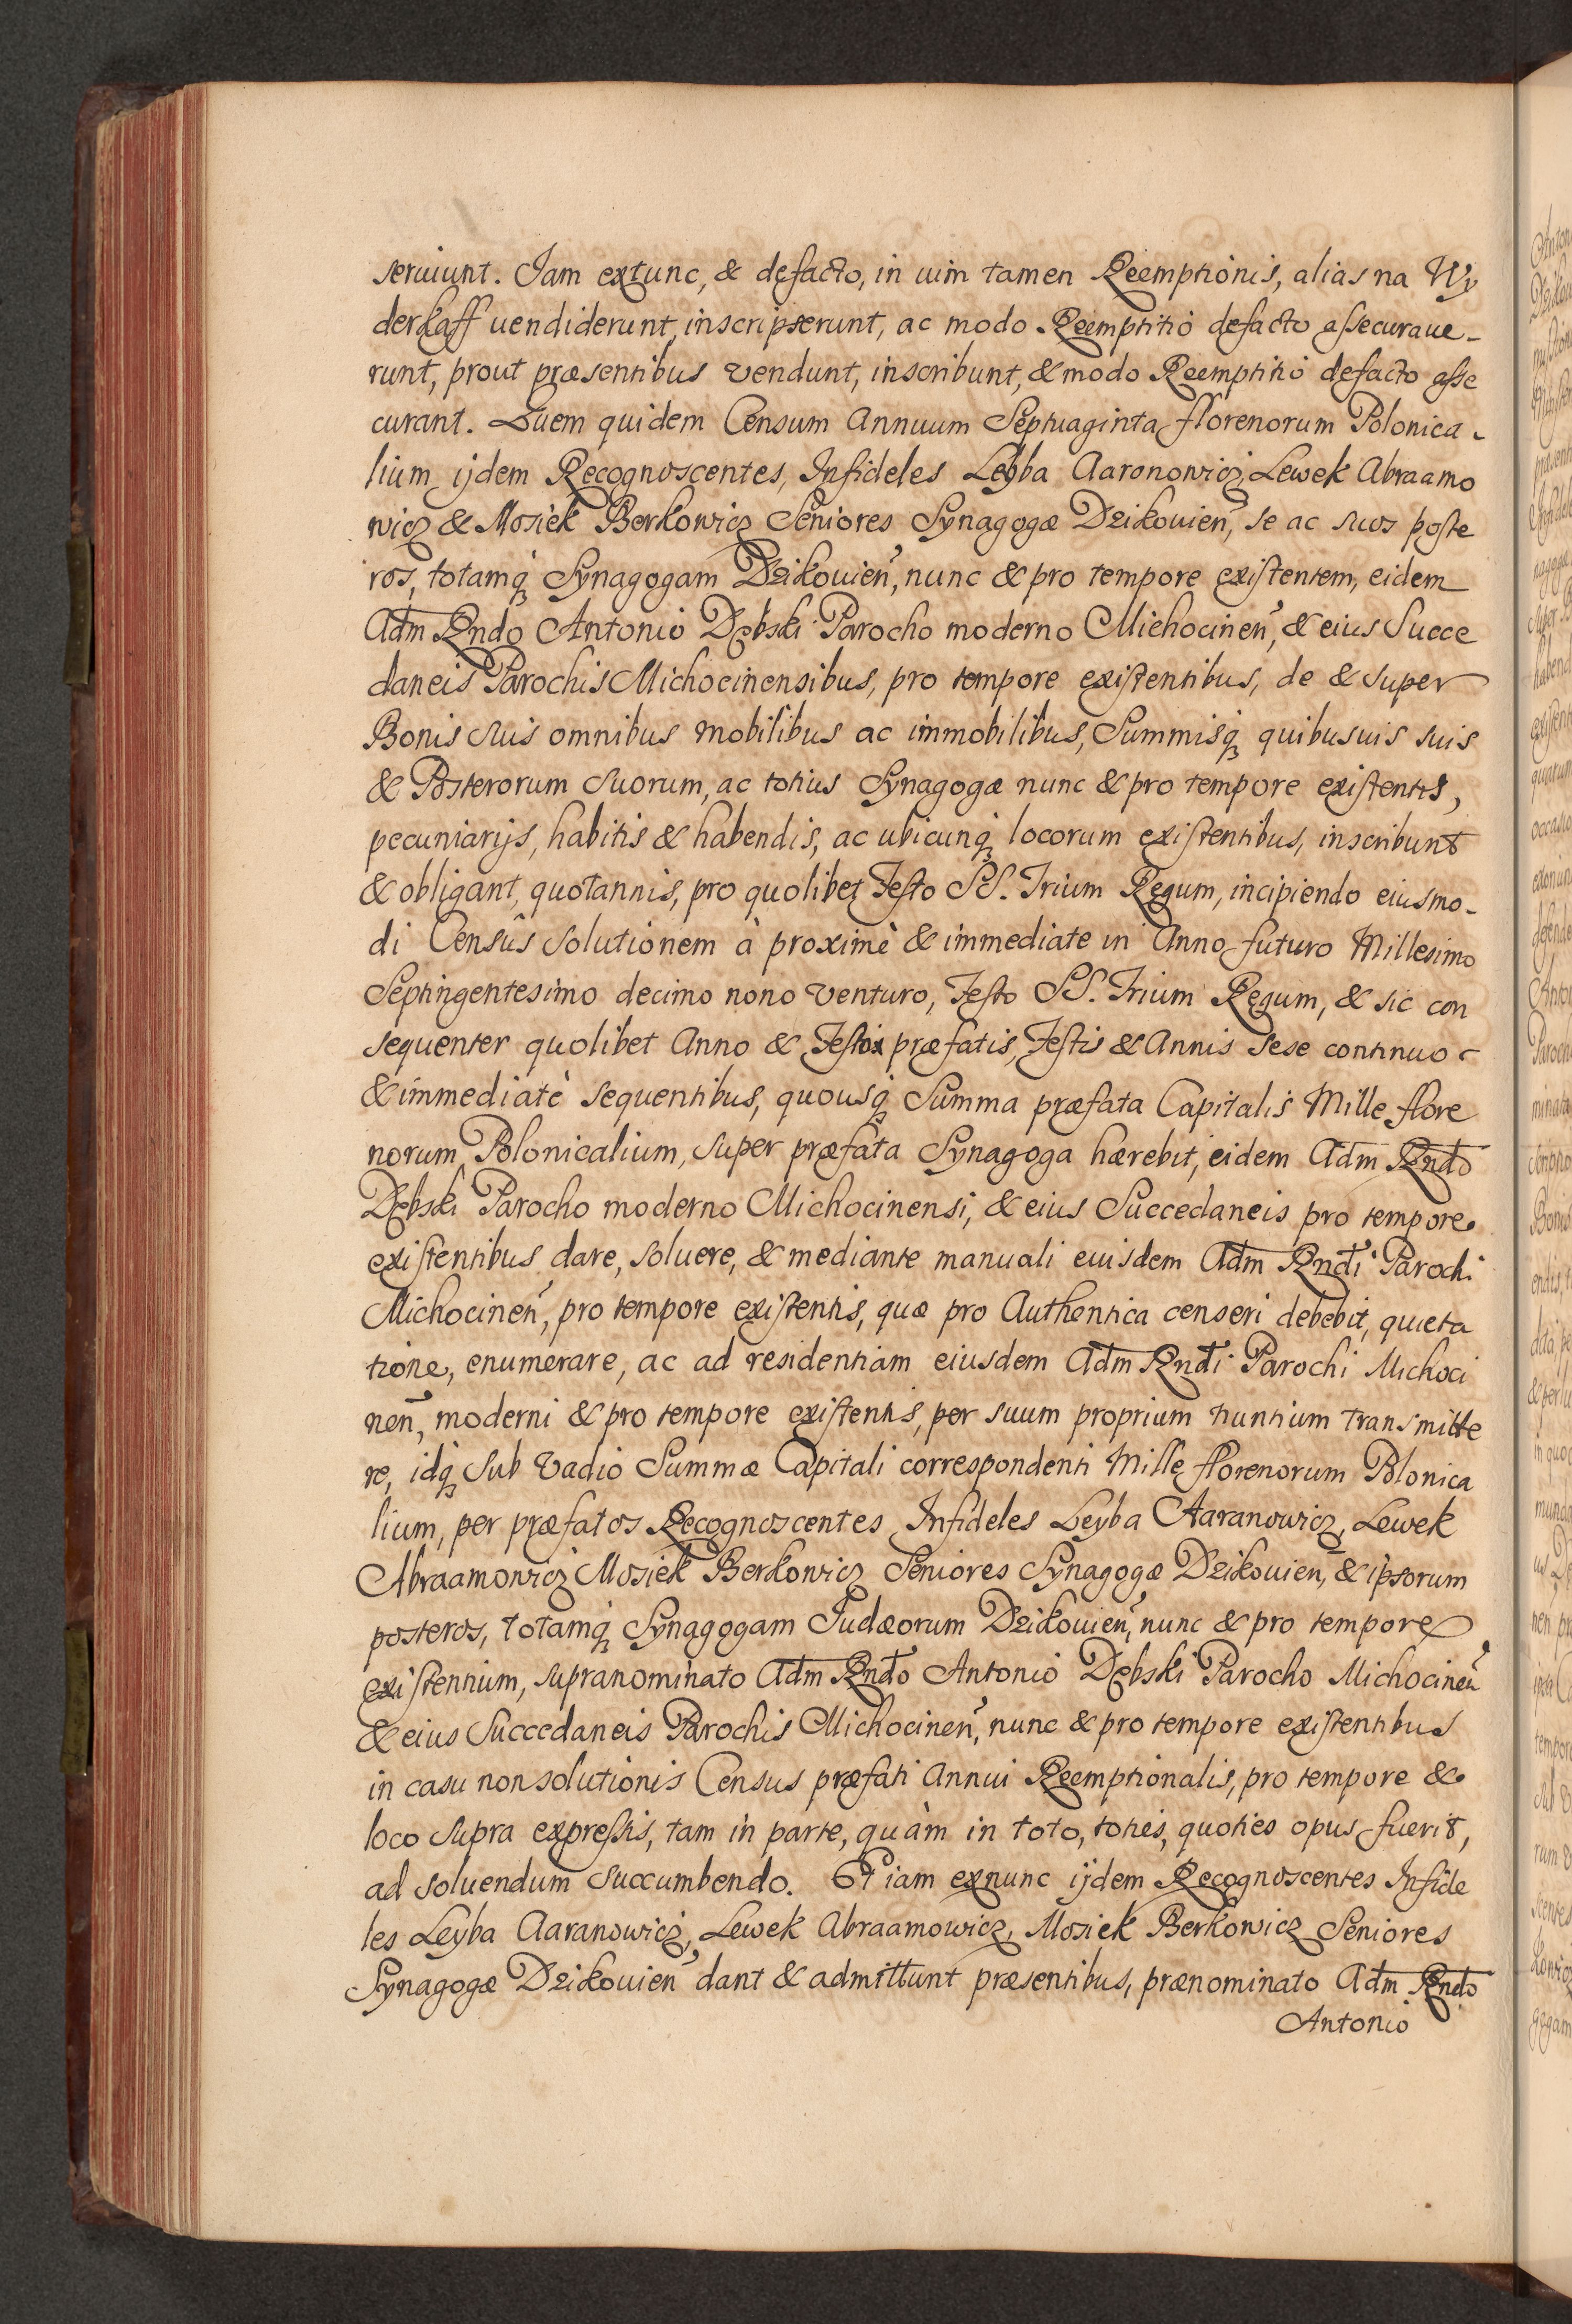 seruiunt. Jam extunc, & defacto, in uim tamen Reemptionis, alias na Wy
derkaff uendiderunt, inscripserunt, ac modo Reemptitio defacto assecuraue-
runt, prout præsentibus vendunt, inscribunt, & modo Reemptitio defacto asse
curant. Quem quidem Censum Annuum Septuaginta florenorum Polonica-
lium ijdem Recognoscentes, Infideles Leyba Aaronowicz, Lewek Abraamo
wicz & Mosiek Berkowicz Seniores Synagogæ Dzikouień, se ac suos poste
ros, totamq Synagogam Dzikouień, nunc & pro tempore existentem, eidem
Adm Rndo Antonio Dębski Parocho moderno Michocineń, & eius Succe
daneis Parochis Michocinensibus, pro tempore existentibus, de & super
Bonis suis omnibus mobilibus ac immobilibus, Summisq quibusuis suis
& Posterorum suorum, ac totius Synagogæ nunc & pro tempore existentis,
pecuniarijs, habitis & habendis, ac ubicunq locorum existentibus, inscribunt
& obligant, quotannis, pro quolibet Festo SS. Trium Regum, incipiendo eiusmo-
di Censûs solutionem à proximè & immediate in Anno futuro Millesimo
Septingentesimo decimo nono venturo, Festo SS. Trium Regum, & sic con
sequenter quolibet Anno & Festo præfatis, Festis & Annis sese continuo
& immediatè sequentibus, quousq Summa præfata Capitalis Mille flore
norum Polonicalium, super præfata Synagoga hærebit, eidem Adm Rndo
Dębski Parocho moderno Michocinensi, & eius Succedaneis pro tempore
existentibus dare, soluere, & mediante manuali euisdem Adm Rndi Parochi
Michocineń, pro tempore existentis, quæ pro Authentica censeri debebit, quieta
tione, enumerare, ac ad residentiam eiusdem Adm Rndi Parochi Michoci
neń, moderni & pro tempore existentis, per suum proprium nuntium transmitte
re, idq sub vadio Summæ Capitali correspondenti Mille florenorum Polonica
lium, per præfatos Recognoscentes Infideles Leyba Aaranowicz, Lewek
Abraamowicz Mosiek Berkowicz Seniores Synagogæ Dzikouień, & ipsorum
posteros, totamq Synagogam Judæorum Dzikouień, nunc & pro tempore
existentium, supranominato Adm Rndo Antonio Dębski Parocho Michocineń
& eius Succedaneis Parochis Michocineń, nunc & pro tempore existentibus
in casu non solutionis Census præfati Annui Reemptionalis, pro tempore &
loco supra expressis, tam in parte, quàm in toto, toties, quoties opus fuerit,
ad soluendum succumbendo. Et iam exnunc ijdem Recognoscentes Infide
les Leyba Aaranowicz, Lewek Abraamowicz, Mosiek Berkowicz Seniores
Synagogæ Dzikouień dant & admittunt præsentibus, prænominato Adm Rndo
Antonio